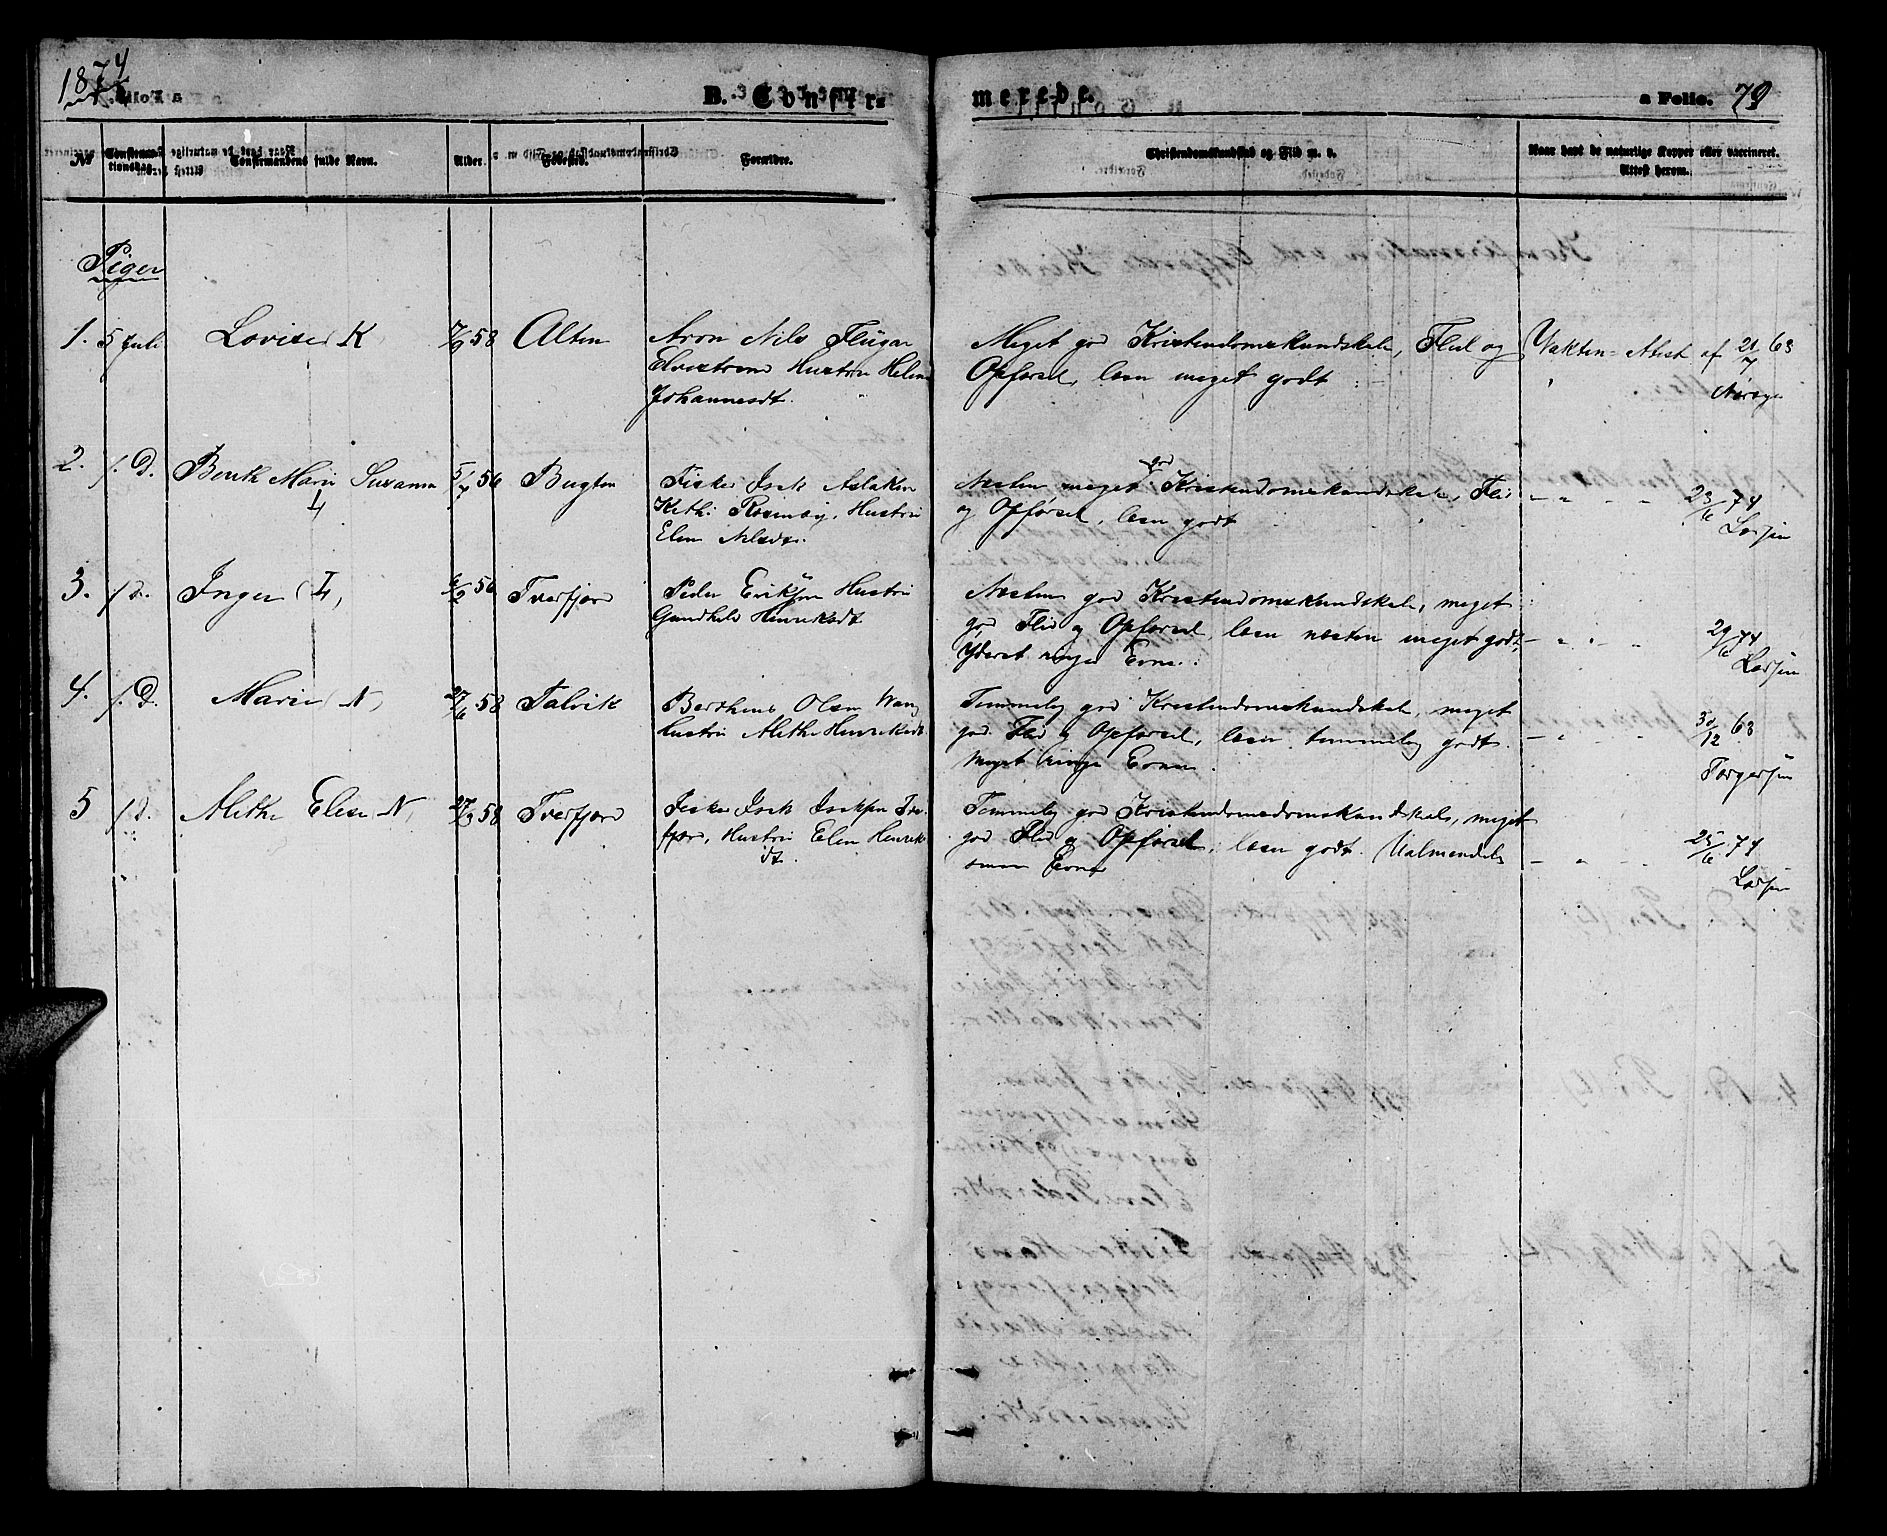 1874
B. Confir-
merede.
a Folio. 79
No
Confirma-
tionsdag.
Confirmandens fulde Navn.
Alder.
Fødested.
Forældre.
Christendomskundskab og Flid m. v.
Naar havt de naturlige Kopper eller vaccineret.
Attest herom.
Piger
1. 5 Juli Lovise K 58 Alten Aron Nils
Hustru Helene
Johannesdt.
Meget god Kristendomskundskab, Flid og
Opførsel, læser meget godt
Vakcin-Attest af 21/7 63
Norager
2. f. D. Berith Marie Susanna L 5/7 56 Bugten Fisker Isak Aslaksen
Hustru
Elen Nilsdtr.
Næsten meget god Kristendomskundskab, Flid
og Opførsel, læser godt
23/6 74
Larsen
3. f. D. Inger L, 56 Tverfjord Peder Eriksen Hustru
Gundhild Henriksdt
Næsten god Kristendomskundskab, meget
god Flid og Opførsel, læser næsten meget godt,
Yderst ringe Evner.
29/6 74
Larsen
4. f. D. Marie N, 27/6 58 Talvik Olsen Wang
Hustru Alethe Henriksdt.
Temmelig god Kristendomskundskab, meget
god Flid og Opførsel, læser temmelig godt.
Meget ringe Evner.
30/12 63
Torgersen
5 f. D. Alethe Elen N, 27/3 58 Tverfjord Fisker Isak Isaksen Tver-
fjord, Hustru Elen Henriks
dt.
Temmelig god Kristendomsdomskundskab, meget
god Flid og Opførsel, læser godt. (Ualmindelig
smaa Evner
25/6 74
Larsen